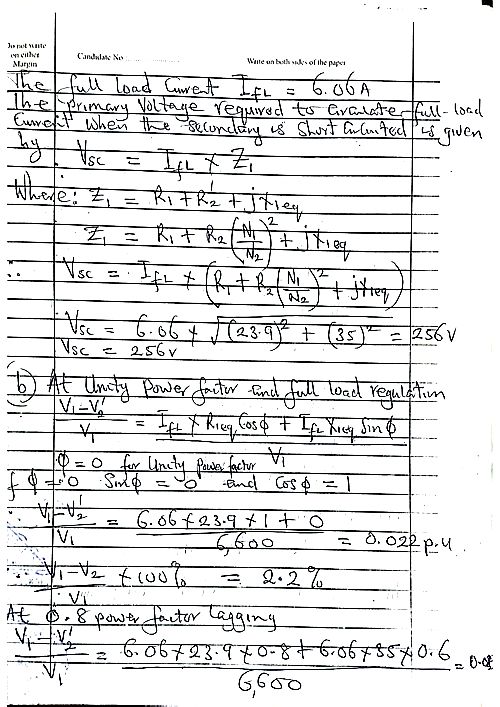 Do not write
on either
Margin
Candidate No
Write on both sides of the paper
The full load Current I_fL = 6.06A
The primary Voltage required to circulate full-load
Current when the secondary is short circuited is given
by V_sc = I_fL × Z_1
Where: Z_1 = R_1 + R_2' + jX_1eq
Z_1 = R_1 + R_2 (N_1/N_2)^2 + jX_1eq
∴ V_sc = I_fL × (R_1 + R_2 (N_1/N_2)^2 + jX_1eq)
∴ V_sc = 6.06 × √((23.9)^2 + (35)^2) = 256V
V_sc = 256V
b) At Unity power factor and full load regulation
(V_1 - V_2')/V_1 = (I_fL × R_1eq Cosϕ + I_fL X_1eq Sinϕ)/V_1
ϕ = 0 for Unity power factor
f ϕ = 0 Sinϕ = 0 and Cosϕ = 1
(V_1 - V_2')/V_1 = (6.06 × 23.9 × 1 + 0)/6,600 = 0.022 p.u
∴ (V_1 - V_2)/V_1 × 100% = 2.2%
At 0.8 power factor lagging
(V_1 - V_2')/V_1 = (6.06 × 23.9 × 0.8 + 6.06 × 35 × 0.6)/6,600 = 0.0